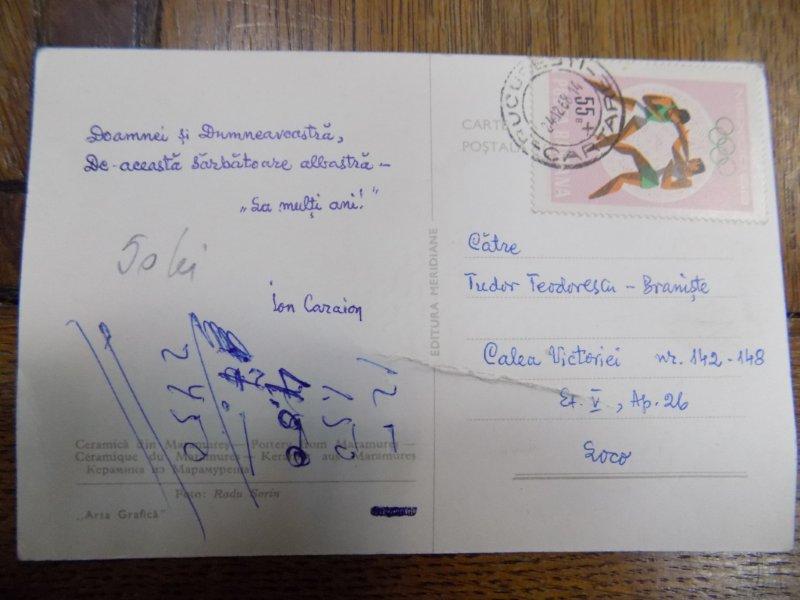 Doamnei și Dumneavoastră,
De-această sărbătoare albastră —
„La mulți ani!"
50 lei
Ion Caraion
12
1.50
2450
Ceramică din Maramureș — Pottery from Maramureș —
Céramique du Maramureș — Keramik aus Maramureș
Керамика из Марамуреша
Foto: Radu Sorin
„Arta Grafică"
EDITURA MERIDIANE
CARTE
POȘTALĂ
BUCUREȘTI
CARTARE
55
Către
Tudor Teodorescu - Braniște
Calea Victoriei nr. 142-148
Et. V, Ap. 26
Loco